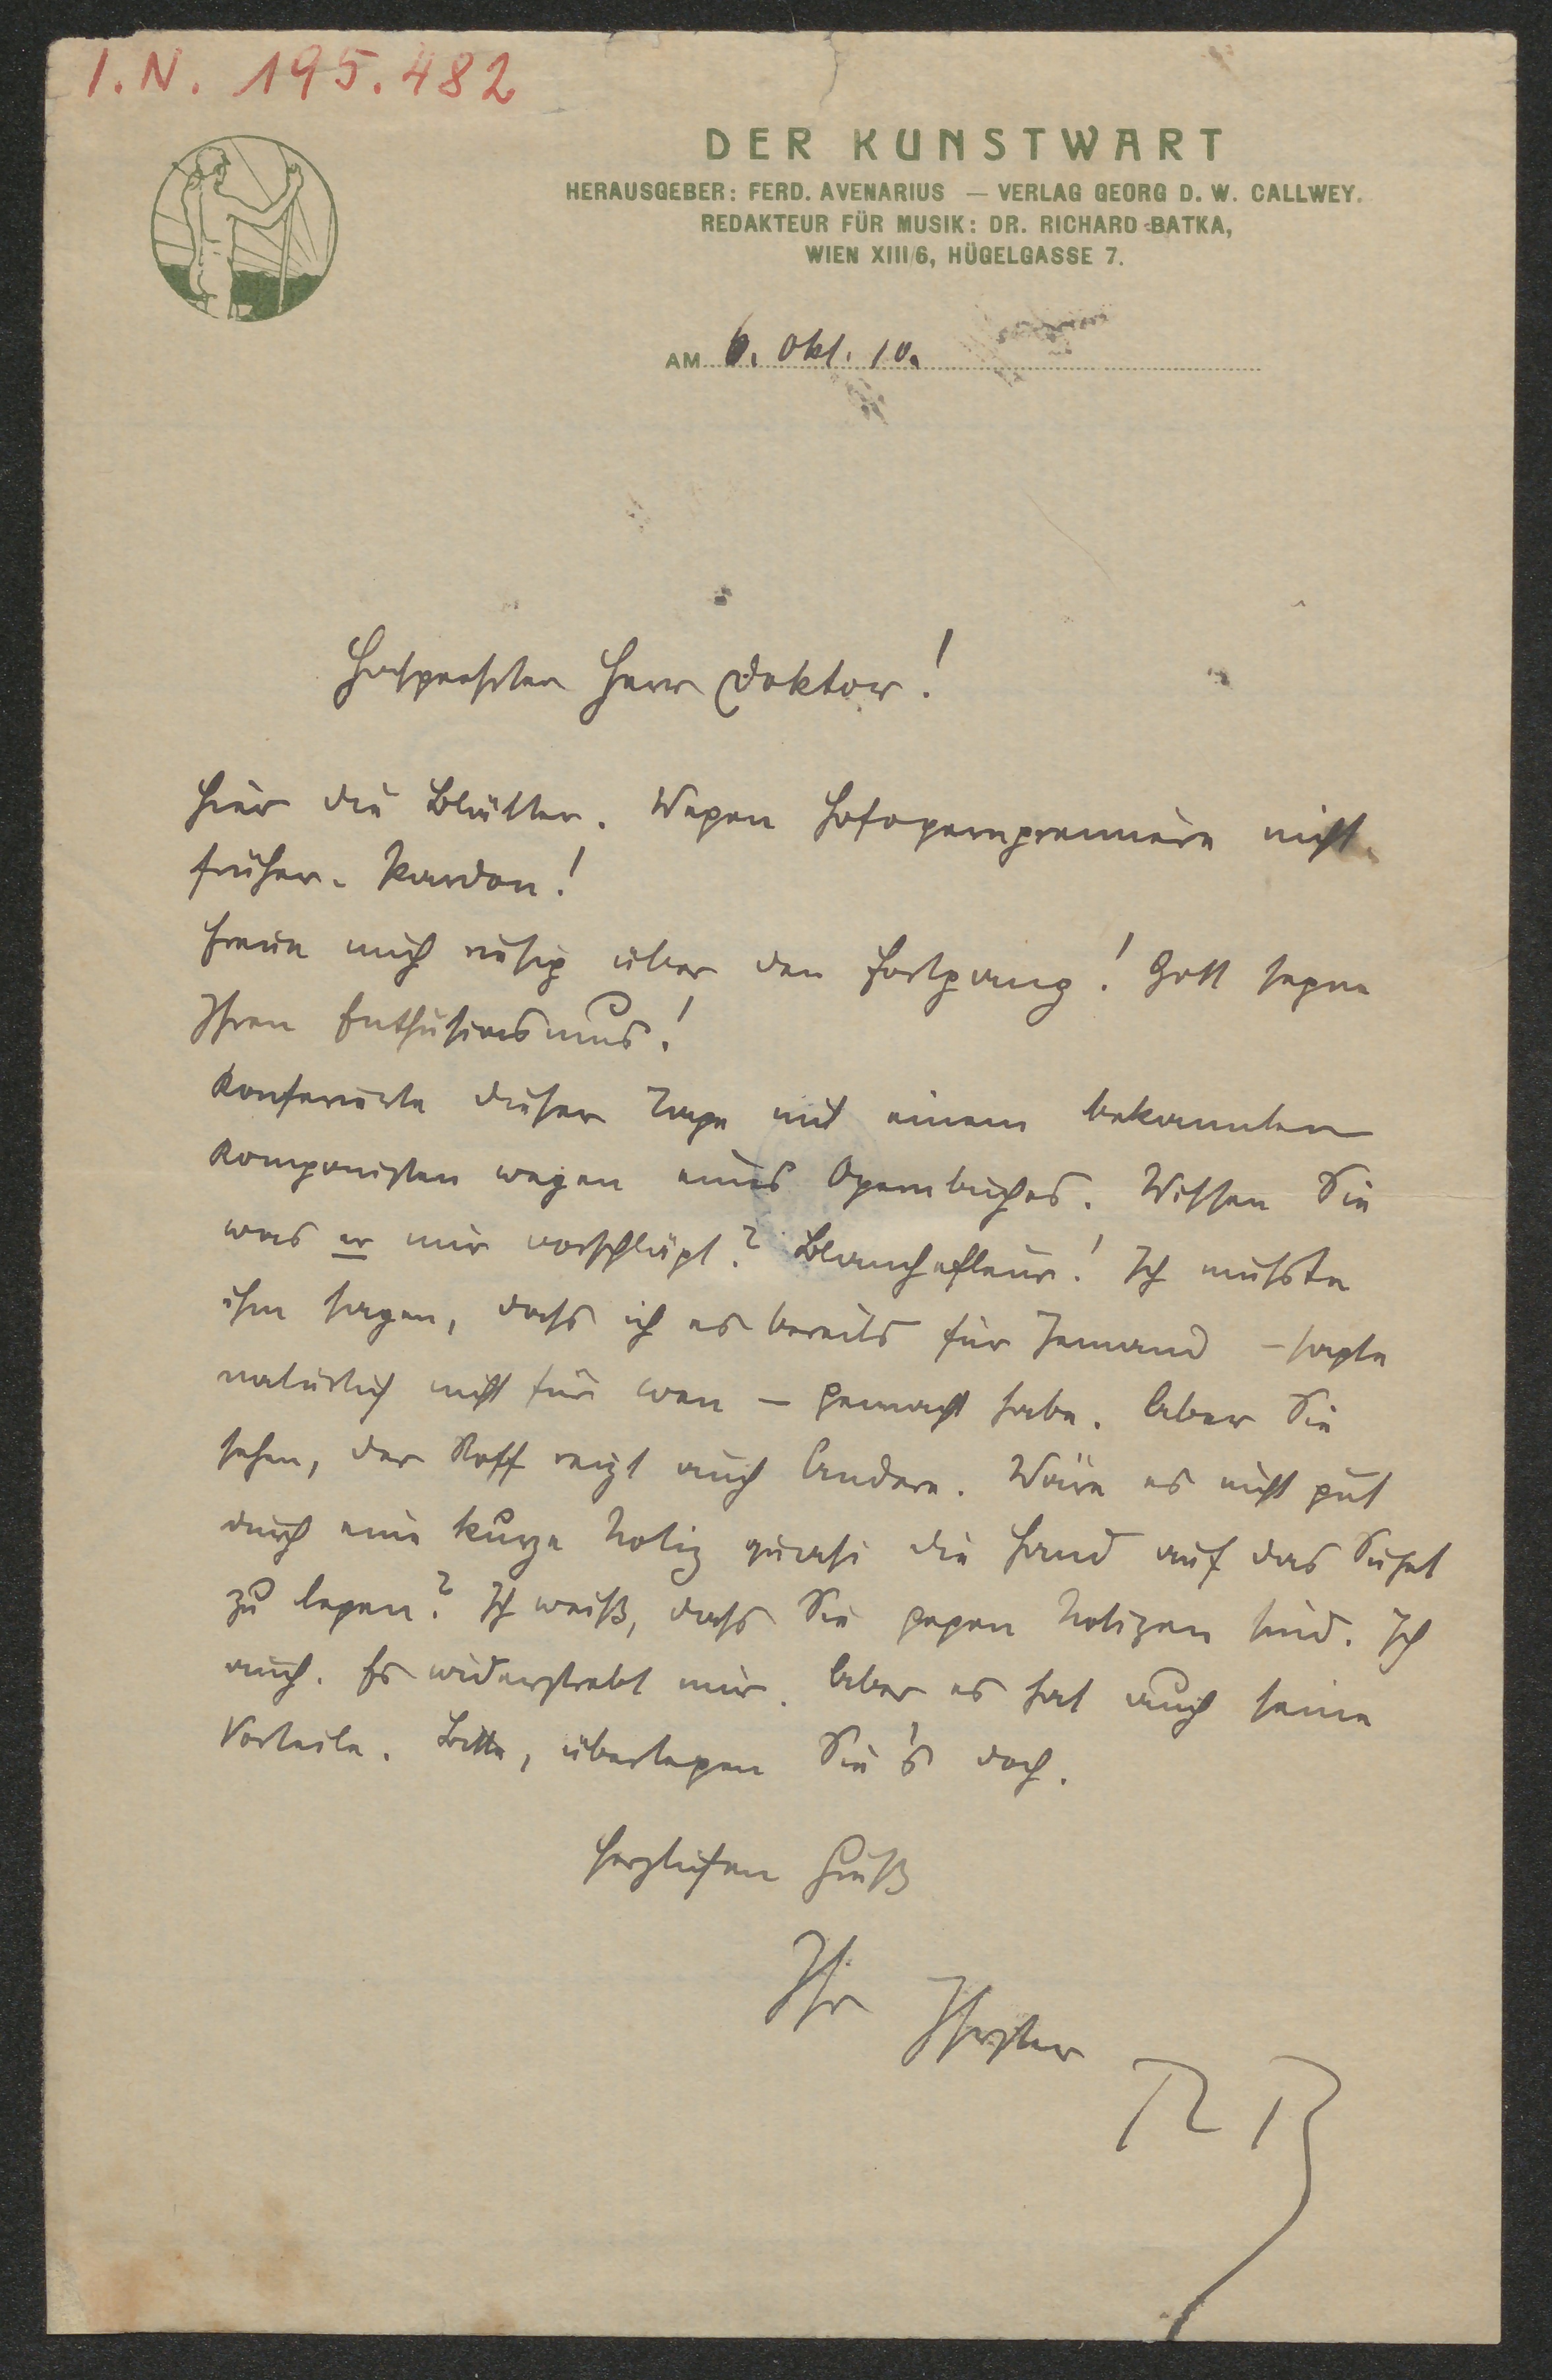 I.N. 195.482
DER KUNSTWART
HERAUSGEBER: FERD. AVENARIUS — VERLAG GEORG D. W. CALLWEY.
REDAKTEUR FÜR MUSIK: DR. RICHARD BATKA,
WIEN XIII/6, HÜGELGASSE 7.
AM 6. Okt. 10.
Hochgeehrter Herr Doktor!
Hier die Blätter. Wegen Hofopernpremière nicht
früher. Pardon!
Freue mich riesig über den Fortgang! Gott segne
Ihren Enthusiasmus!
Konferierte dieser Tage mit einem bekannten
Komponisten wegen eines Opernbuches. Wissen Sie
was er mir vorschlägt? Blanchefleur! Ich musste
ihm sagen, dass ich es bereits für Jemand – sagte
natürlich nicht für wen – gemacht habe. Aber Sie
sehen, der Stoff reizt auch Andere. Wäre es nicht gut
durch eine kurze Notiz quasi die Hand auf das Sujet
zu legen? Ich weiß, dass Sie gegen Notizen sind. Ich
auch. Es widerstrebt mir. Aber es hat auch seine
Vorteile. Bitte, überlegen Sie's doch.
Herzlichen Gruß
Ihr
RB